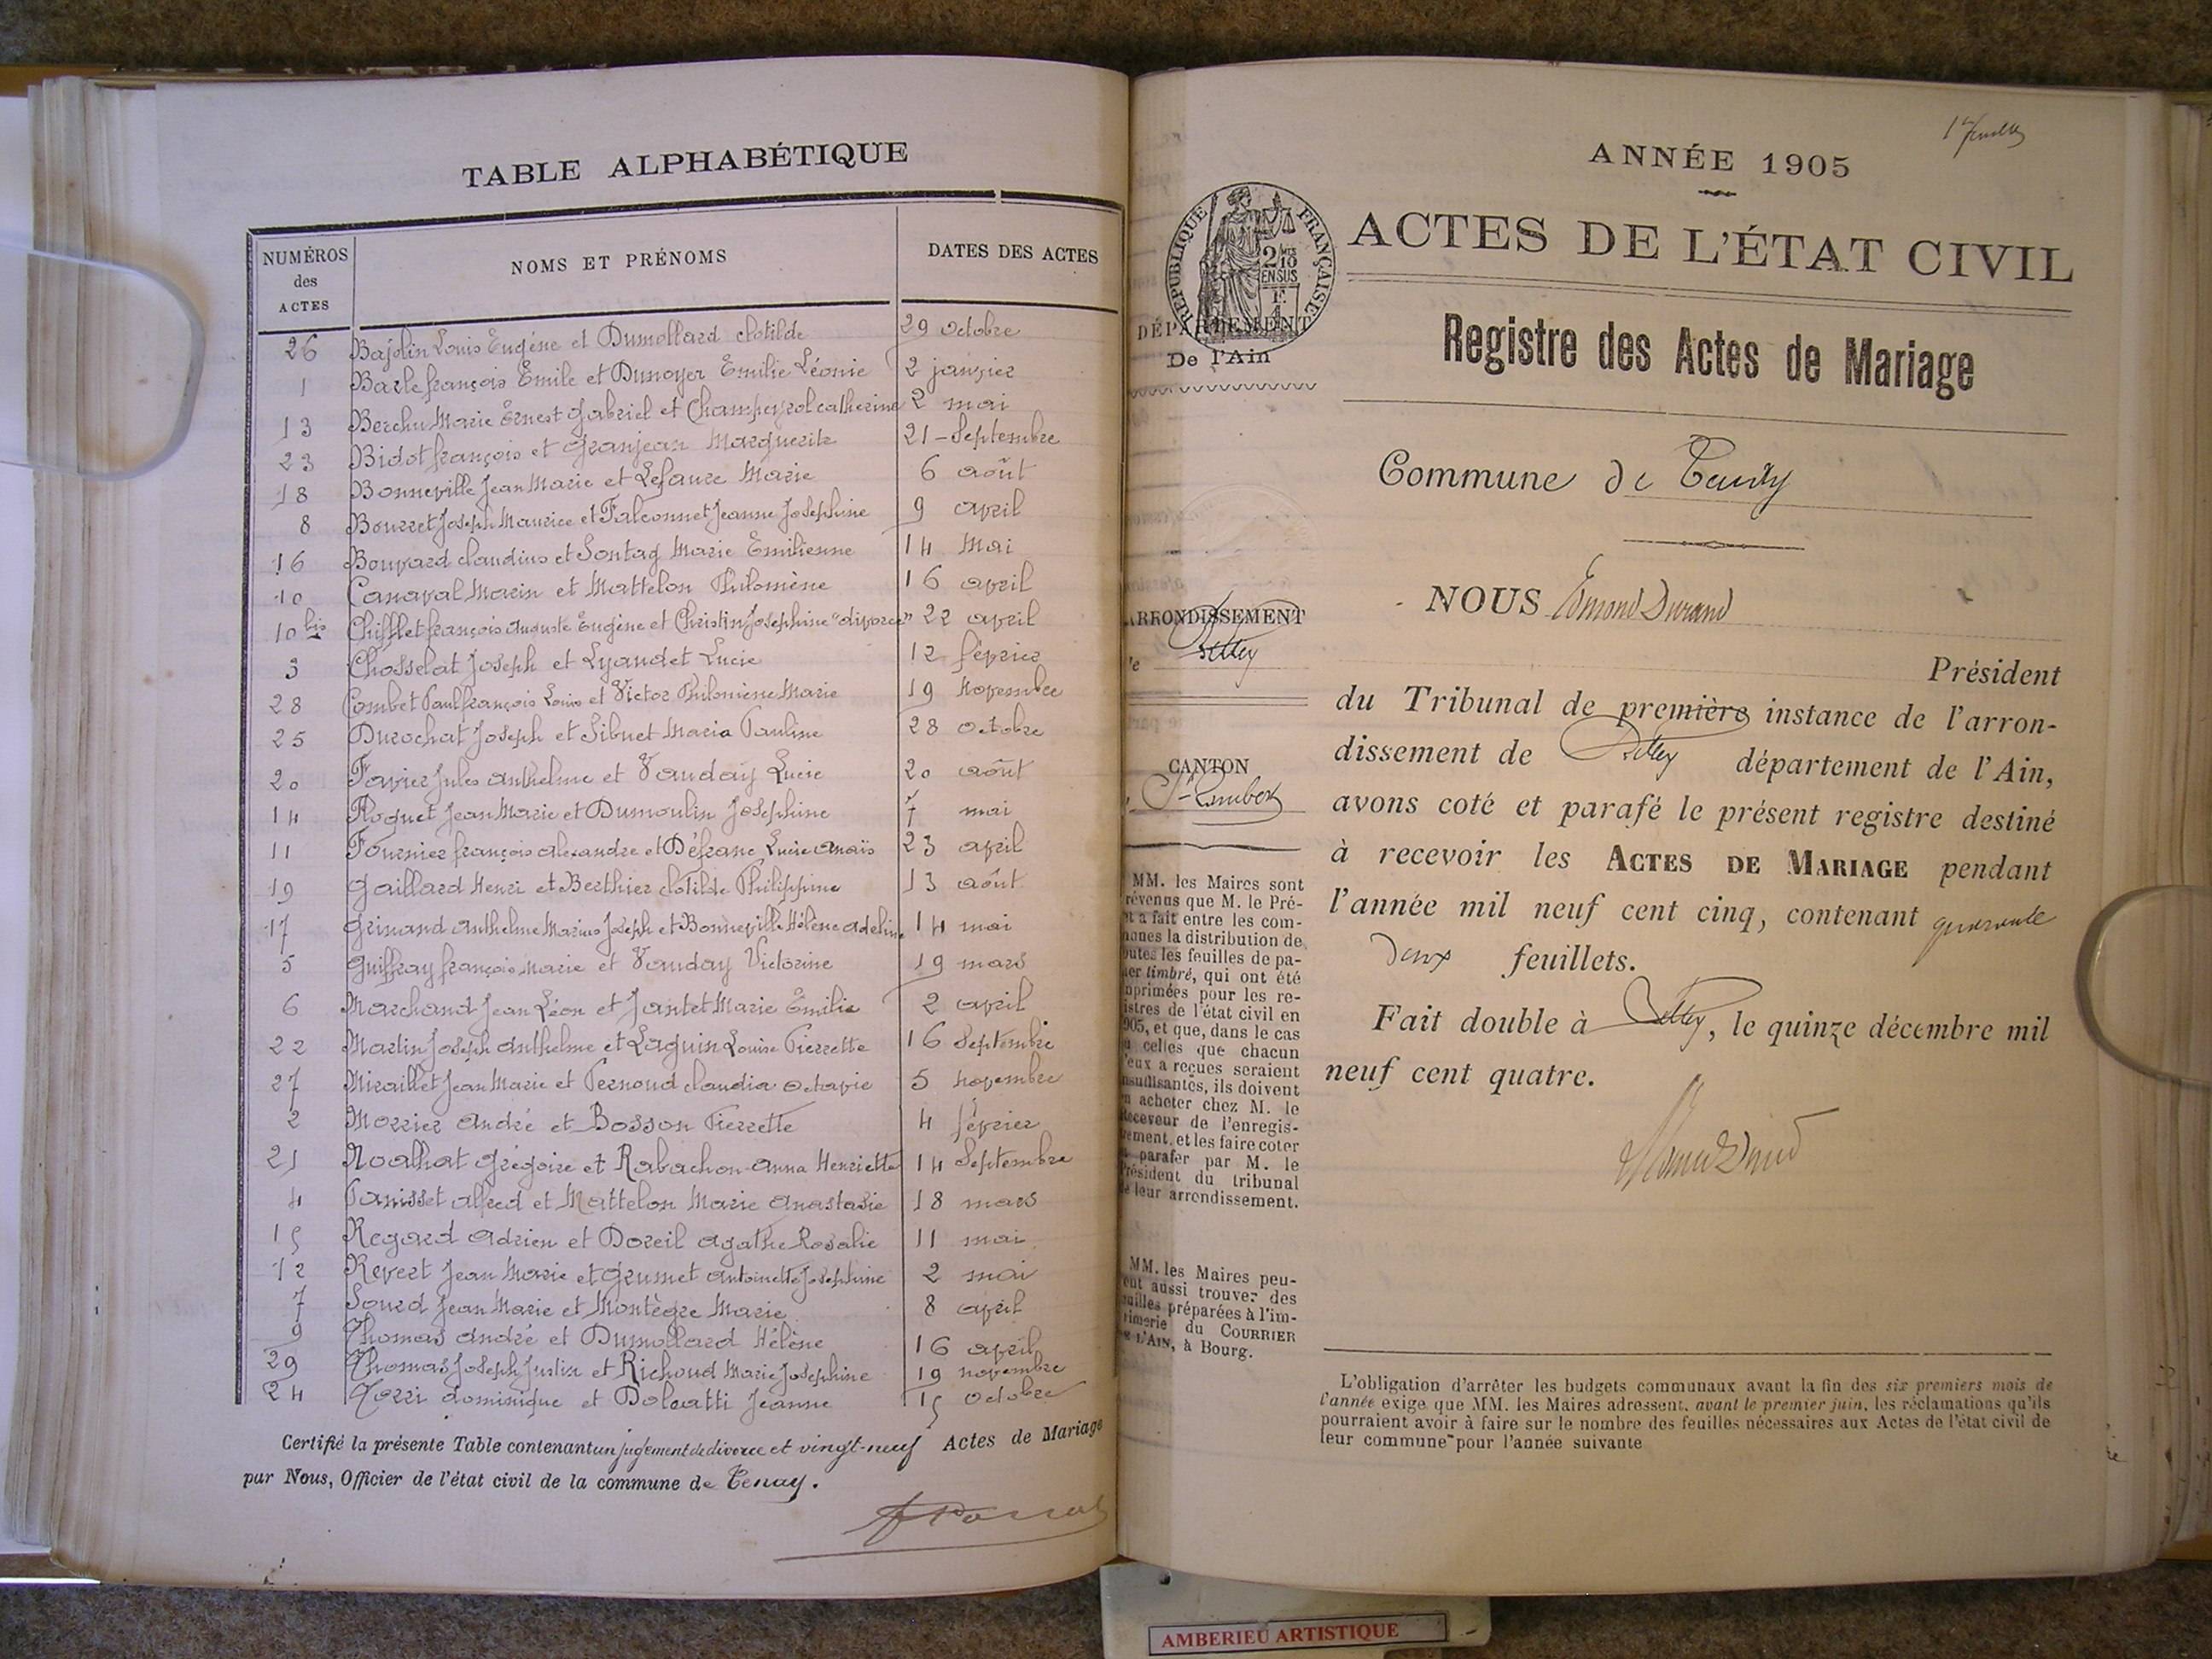 TABLE ALPHABÉTIQUE
NUMÉROS des ACTES
NOMS ET PRÉNOMS
DATES DES ACTES
26 Bajolin Louis Eugène et Dumollard clotilde 29 octobre
1 Barle françois Emile et Dunoyer Emilie Léonie 2 janvier
13 Berchu Marie Ernest Gabriel et Champeyrol catherine 2 mai
23 Bidot françois et Granjean Marguerite 21 - Septembre
18 Bonneville Jean Marie et Lefaure Marie 6 août
8 Bourret Joseph Maurice et Falconnet Jeanne Josephine 9 avril
16 Bouvard claudius et Sontag Marie Emilienne 14 Mai
10 Canaval Marin et Mattelon Philomène 16 avril
10 bis Chifflet françois auguste Eugène et Christin Josephine "divorce" 22 avril
3 Chosselat Joseph et Lyaudet Lucie 12 février
28 Combet Paul françois Louis et Victor Philomène Marie 19 Novembre
25 Durochat Joseph et Sibuet Maria Pauline 28 octobre
20 Favier Jules anthelme et Vauday Lucie 20 août
14 Floquet Jean Marie et Dumoulin Josephine 7 mai
11 Fournier françois alexandre et Défranc Lucie anaïs 23 avril
19 Gaillard Henri et Berthier clotilde Philippine 13 août
17 Grinand anthelme Marius Joseph et Bonneville Hélène adeline 14 mai
5 Guiffray françois marie et Vauday Victorine 19 mars
6 Marchand Jean Léon et Jantet Marie Emilie 2 avril
22 Martin Joseph anthelme et Laguin Louise Pierrette 16 Septembre
27 Miraillet Jean Marie et Pernoud claudia octavie 5 Novembre
2 Morrier André et Bosson Pierrette 4 février
21 Noalhat Grégoire et Rabachon anna Henriette 14 Septembre
4 Panisset alfred et Mattelon Marie anastasie 18 mars
15 Regard Adrien et Doreil agathe Rosalie 11 mai
12 Revert Jean Marie et Grumet Antoinette Josephine 2 mai
7 Sourd Jean Marie et Montègre Marie 8 avril
9 Thomas André et Dumollard Hélène 16 avril
29 Thomas Joseph Justin et Richoud Marie Josephine 19 novembre
24 Torri dominique et Dolcatti Jeanne 15 octobre
Certifié la présente Table contenant un jugement de divorce et vingt-neuf Actes de Mariage
par Nous, Officier de l'état civil de la commune de Tenay.
1er feuillet
ANNÉE 1905
ACTES DE L'ÉTAT CIVIL
RÉPUBLIQUE FRANÇAISE
2/10 EN SUS
DÉPARTEMENT
De l'Ain
Registre des Actes de Mariage
Commune de Tenay
NOUS Edmond Durand
Président
du Tribunal de première instance de l'arron-
dissement de Belley département de l'Ain,
avons coté et parafé le présent registre destiné
à recevoir les ACTES DE MARIAGE pendant
l'année mil neuf cent cinq, contenant quarante
deux feuillets.
Fait double à Belley, le quinze décembre mil
neuf cent quatre.
ARRONDISSEMENT
de Belley
CANTON
St-Rambert
MM. les Maires sont
prévenus que M. le Pré-
et a fait entre les com-
munes la distribution de
outes les feuilles de pa-
ier timbré, qui ont été
mprimées pour les re-
istres de l'état civil en
905, et que, dans le cas
ù celles que chacun
'eux a reçues seraient
nsuffisantes, ils doivent
n acheter chez M. le
Receveur de l'enregis-
rement, et les faire coter
t parafer par M. le
Président du tribunal
de leur arrondissement.
MM. les Maires peu-
ent aussi trouver des
euilles préparées à l'im-
rimerie du COURRIER
DE L'AIN, à Bourg.
L'obligation d'arrêter les budgets communaux avant la fin des six premiers mois de
l'année exige que MM. les Maires adressent, avant le premier juin, les réclamations qu'ils
pourraient avoir à faire sur le nombre des feuilles nécessaires aux Actes de l'état civil de
leur commune pour l'année suivante
AMBERIEU ARTISTIQUE